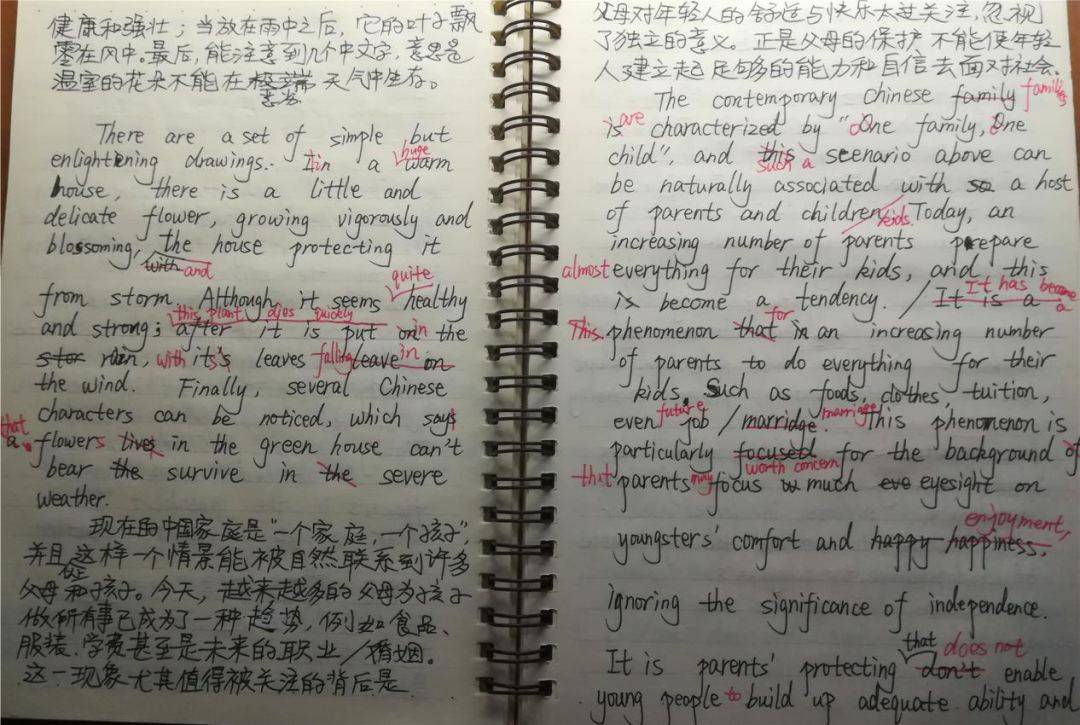 健康和强壮；当放在雨中之后，它的叶子飘
零在风中。最后，能注意到几个中文字，意思是
温室的花朵不能在极端天气中生存。
恶劣
There are a set of simple but
enlightening drawings. In a huge warm
house, there is a little and
delicate flower, growing vigorously and
blossoming, the house protecting it
with and
quite
from storm. Although it seems healthy
this plant dies quickly
and strong; after it is put on in the
stor rain, with it's leaves falling leave in on
the wind. Finally, several Chinese
characters can be noticed, which says
that
a flowers lives in the green house can't
bear the survive in the severe
weather.
现在的中国家庭是“一个家庭，一个孩子”，
并且这样一个情景能被自然联系到许多
父母和孩子。今天，越来越多的父母为孩子
做所有事已成为了一种趋势，例如食品、
服装、学费甚至是未来的职业/婚姻。
这一现象尤其值得被关注的背后是
父母对年轻人的舒适与快乐太过关注，忽视
了独立的意义。正是父母的保护不能使年轻
人建立起足够的能力和自信去面对社会。
The contemporary Chinese family families
is are characterized by "One family, One
child", and this scenario above can
such a
be naturally associated with so a host
of parents and children kids. Today, an
increasing number of parents prepare
almost everything for their kids, and this
is become a tendency. / It is a
It has become a
This phenomenon that for in an increasing number
of parents to do everything for their
kids, Such as foods, clothes, tuition,
even future job / marridge marriage. This phenomenon is
particularly focused for the background of
worth concern
that parents may focus so much eve eyesight on
enjoyment,
youngster's comfort and happy happiness,
ignoring the significance of independence.
It is parents' protecting that don't does not enable
young people to build up adequate ability and